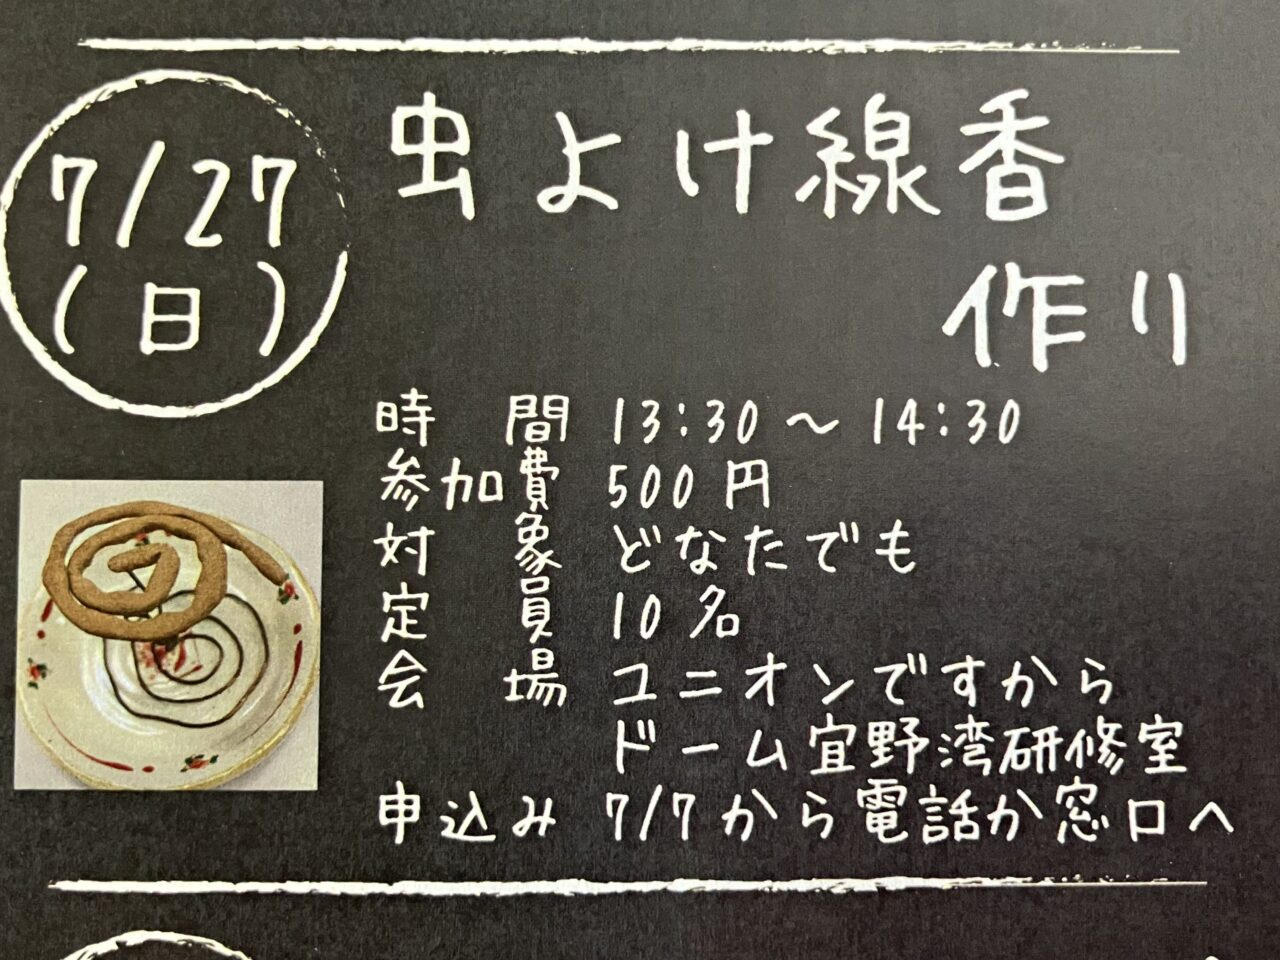 7/27
(日)
虫よけ線香
作り
時間 13:30～14:30
参加費 500円
対象 どなたでも
定員 10名
会場 ユニオンですから
ドーム宜野湾研修室
申込み 7/7から電話か窓口へ